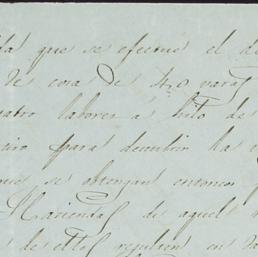 que se efectue el
de cosa de 40 varas
labores á hilo de
para descubrir la
se obtengan entonces
Haciendas de aquel
de ellos resulten en